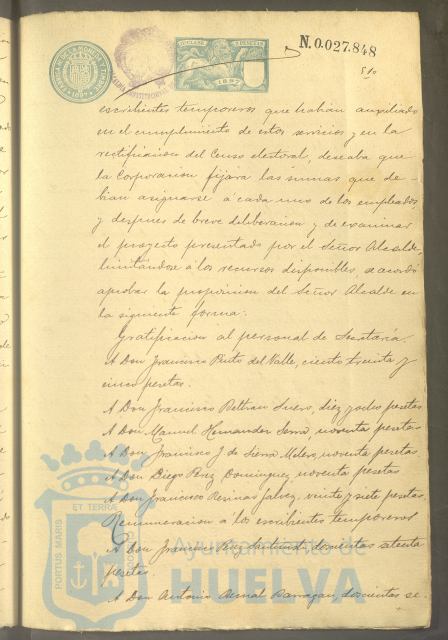 N.0.027.848
1897
escribientes temporeros que habian auxiliado
en el cumplimiento de estos servicios y en la
rectificacion del Censo electoral, deseaba que
la Corporacion fijara las sumas que de-
bian asignarse á cada uno de los empleados
y despues de breve deliberacion y de examinar
el proyecto presentado por el Señor Alcalde,
limitándose á los recursos disponibles, se acordó
aprobar la proposicion del Señor Alcalde en
la siguiente forma:
Gratificacion al personal de Secretaría
A Don Francisco Pinto del Valle, ciento treinta y
cinco pesetas.
A Don Francisco Beltran Suero, diez y ocho pesetas
A Don Manuel Hernandez Serra, noventa pesetas
A Don Francisco J. de Sierra Melero, noventa pesetas
A Don Diego Perez Dominguez, noventa pesetas
A Don Francisco Galvez, veinte y siete pesetas.
Remuneracion a los escribientes temporeros
A Don Francisco Perez doscientas setenta
pesetas.
A Don Antonio Bernal Barragan, doscientas se-
PORTUS MARIS
ET TERRAE
Ayuntamiento de
HUELVA